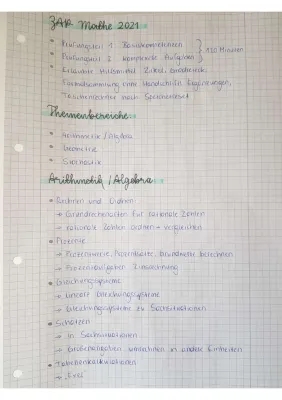 ZAP Mathe 2021
• Prüfungsteil 1: Basiskompetenzen
• Prüfungsteil 2: komplexe Aufgaben
} 120 Minuten
• Erlaubte Hilfsmittel: Zirkel, Geodreieck,
Formelsammlung ohne Ergänzungen,
Taschenrechner
Themenbereiche
• Arithmetik / Algebra
• Geometrie
• Stochastik
Arithmetik / Algebra
• Rechnen und Ordnen
→ Grundrechenarten für rationale Zahlen
→ rationale Zahlen ordnen + vergleichen
• Prozente
→ Prozentwerte, Prozentsatz, Grundwert berechnen
→ Zinsrechnung
• Gleichungssysteme
→ Gleichungssysteme
→ Gleichungssysteme zu Sachsituationen
• Schätzen
→ in Sachsituationen
→ Größenangaben umrechnen in andere Einheiten
• Tabellenkalkulationen
→ Excel